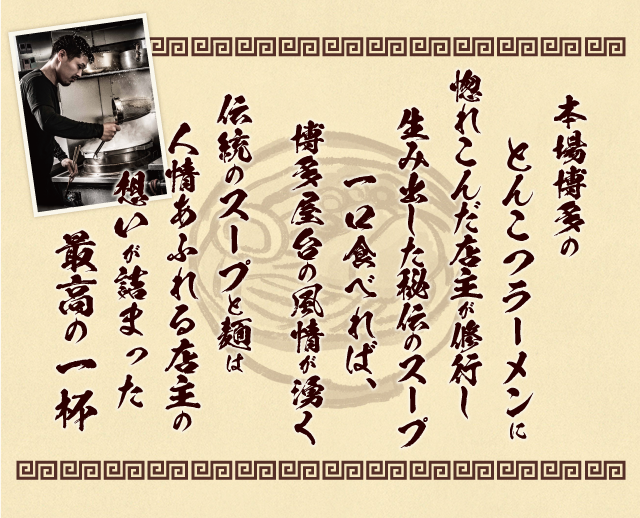 本場博多の
とんこつラーメンに
惚れこんだ店主が修行し
生み出した秘伝のスープ
一口食べれば、
博多屋台の風情が湧く
伝統のスープと麺は
人情あふれる店主の
想いが詰まった
最高の一杯